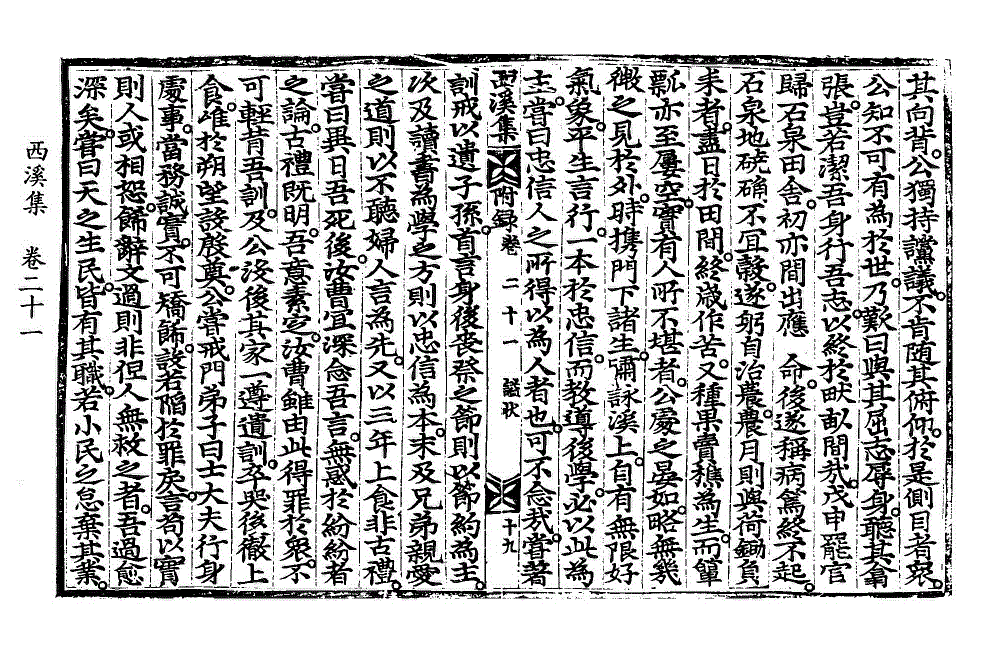 其向背。公獨持讜議。不肯随其俯仰。於是側目者衆。
公知不可有爲於世。乃歎曰與其屈志辱身。聽其翕
張。豈若潔吾身行吾志。以終於畎畝間哉。戊申罷官
歸石泉田舍。初亦間出應 命。後遂稱病篤終不起。
石泉地磽确不宜穀。遂躬自治農。農月則與荷鋤負
耒者。盡日於田間。終歲作苦。又種果賣穛爲生。而簞
瓢亦至屢空。實有人所不堪者。公處之晏如。略無幾
微之見於外。時携門下諸生。彌詠溪上。自有無限好
氣象。平生言行。一本於忠信。而敎導後學。必以此爲
主。嘗曰忠信人之所得以爲人者也。可不念哉。嘗著
西溪集 附錄卷二十一 謚狀 十九
訓戒以遺子孫。首言身後喪祭之節則以節約爲主。
次及讀書爲學之方則以忠信爲本。末及兄弟親愛
之道則以不聽婦人言爲先。又以三年上食非古禮。
嘗曰異日吾死後。汝曹宜深念吾言。無惑於紛紛者
之論。古禮旣明。吾意素定。汝曹雖由此得罪於衆。不
可輕背吾訓。及公沒後其家一遵遺訓。卒哭後徹上
食。唯於朔望設殷奠。公嘗戒門弟子曰士大夫行身
處事。當務誠實。不可矯飾。設若陷於罪戾。言苟以實
則人或相恕。飾辭文過則非但人無救之者。吾過愈
深矣。嘗曰天之生民。皆有其職。若小民之怠棄其業。
西溪集 卷二十一